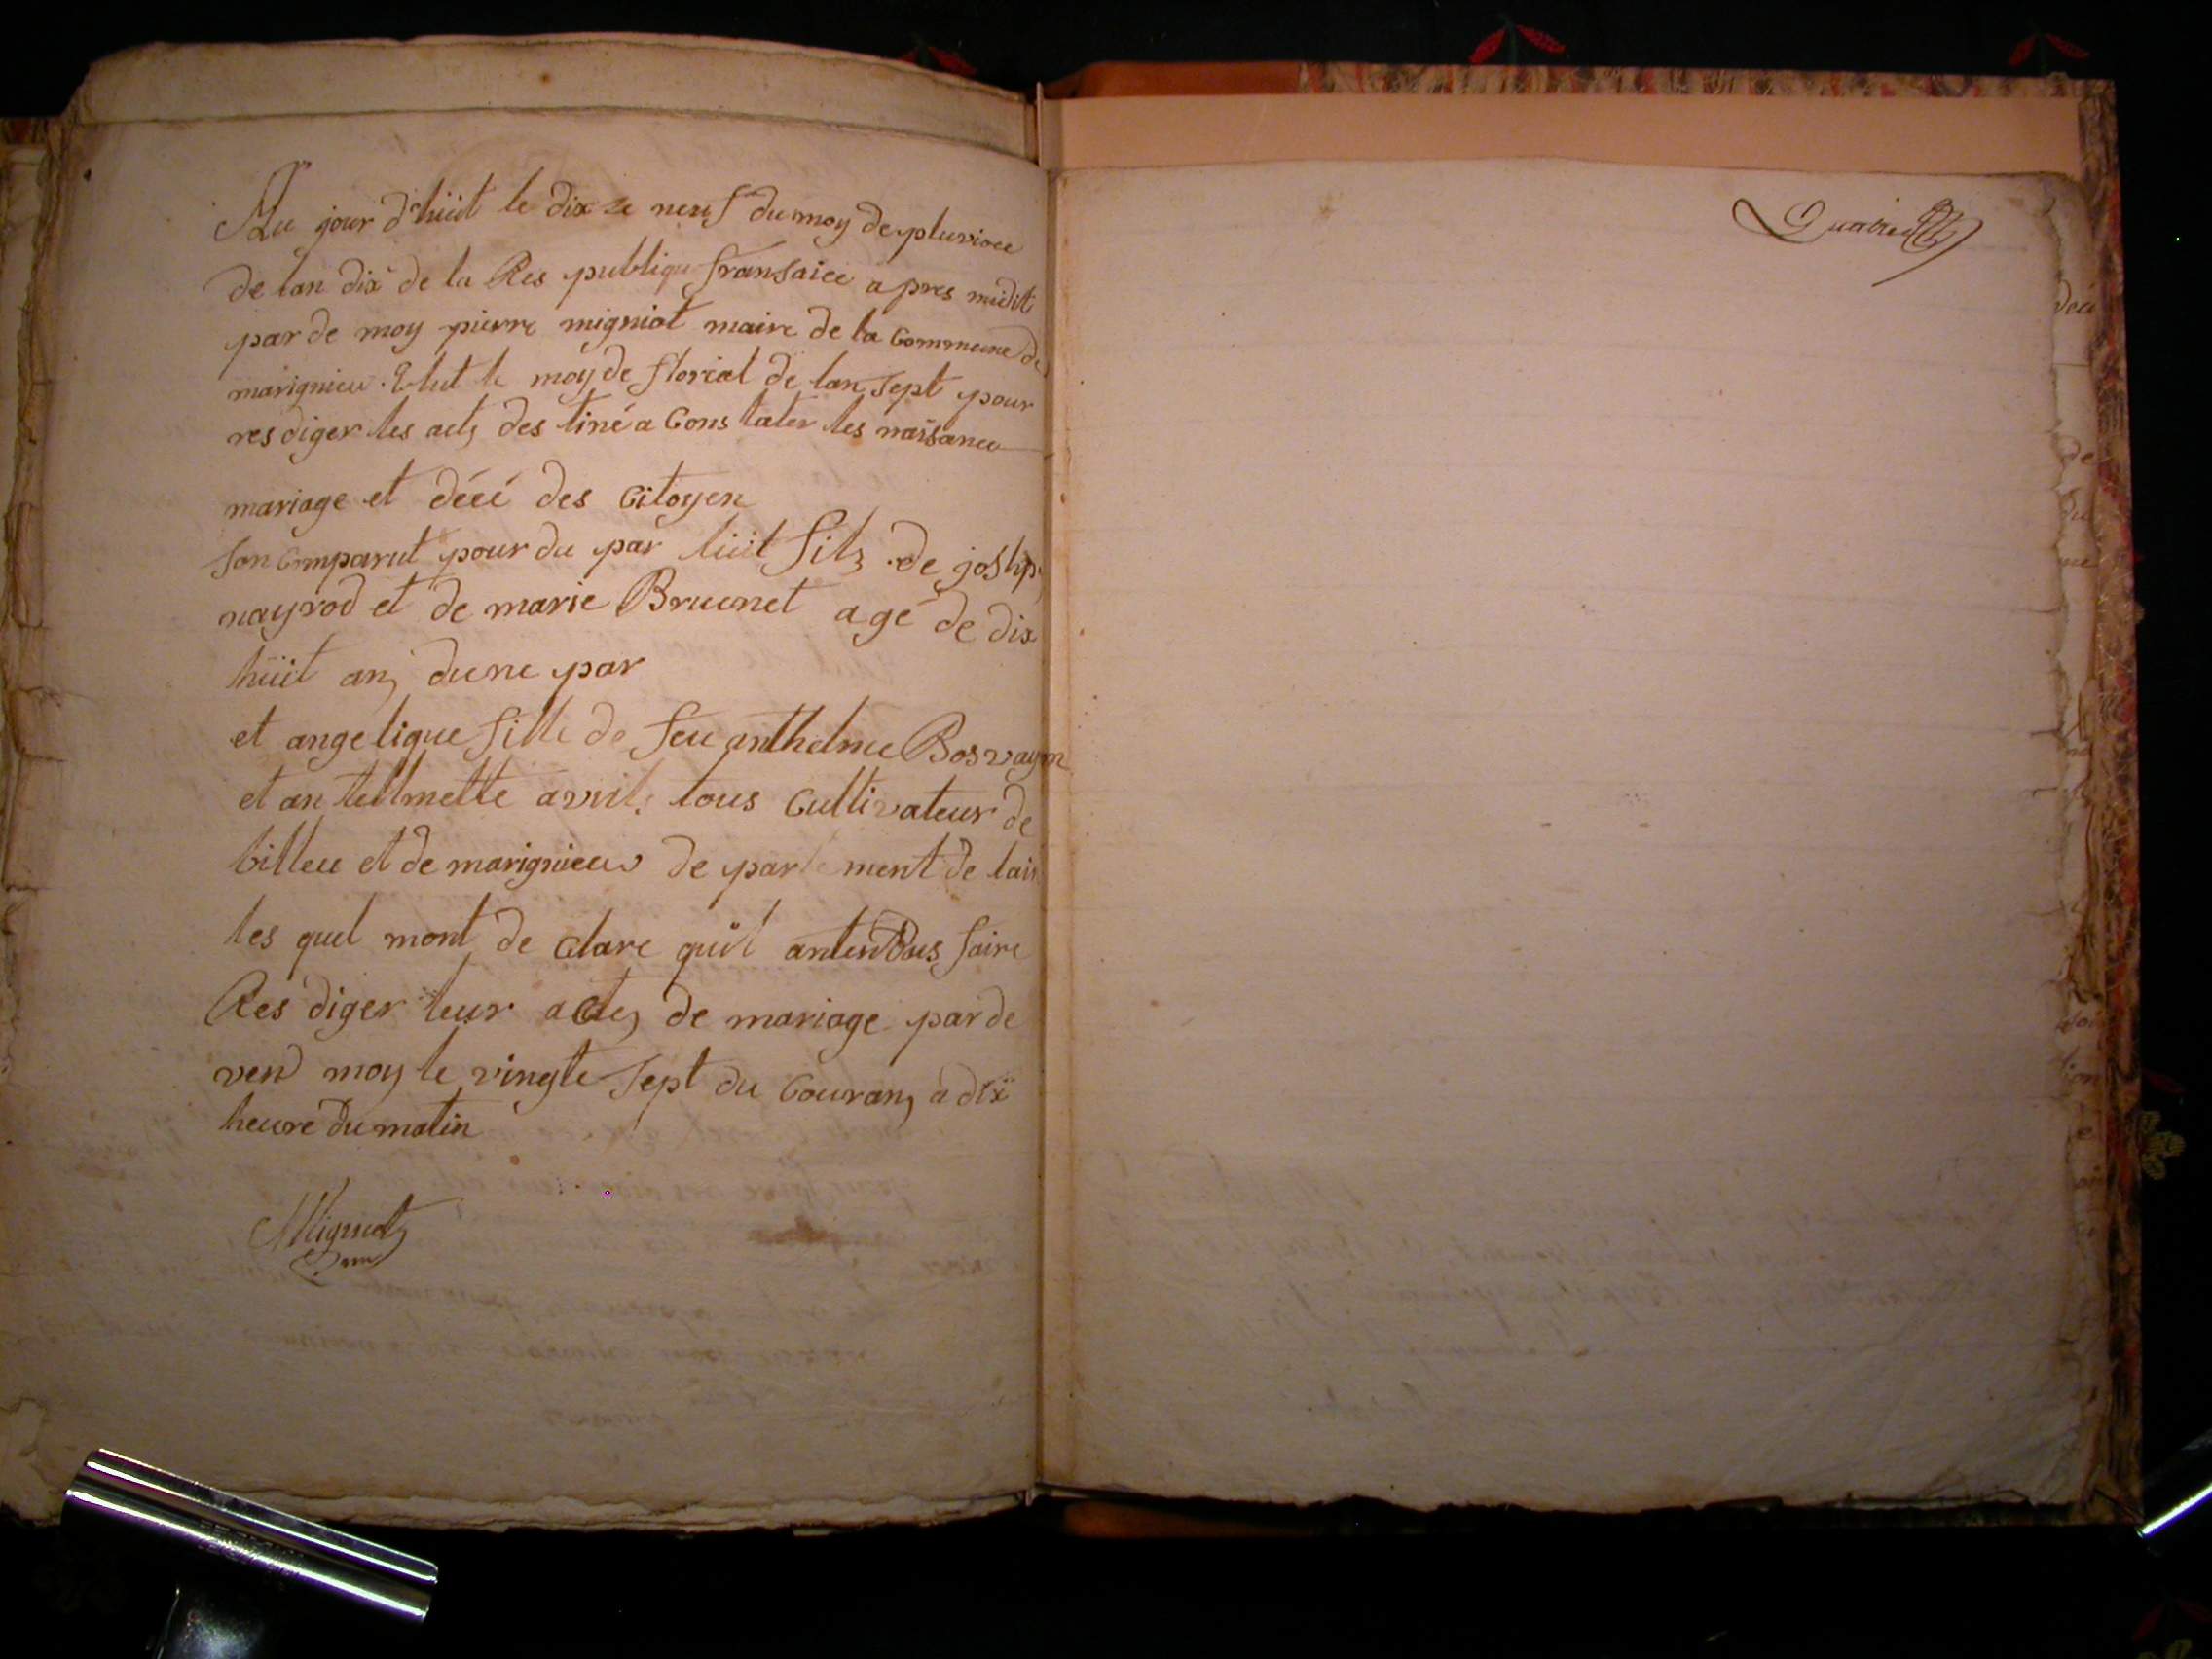 Au jour d'hüit le dix ze neuf du moy de pluvioce
de lan dix de la Res publique fransaice apres midit
par de moy pierre migniot maire de la Commune de
marignieu. Elut le moy de florial de lan sept pour
res diger les acts des tiné a Cons tater les naissance
mariage et décé des Citoyen
son Comparut pour du par lüit fils de joshp
nayrod et de marie Brunet agé de dix
hüit ans dune par
et angelique fille de feu anthelme Bosvayn
et an tellmette avril tous Cultivateur de
billeu et de marignieu de parte ment de lain
les quel mont de Clare quil antendus faire
Res diger leur actes de mariage par de
vend moy le vingte sept du Courans a dix
heure du matin
Mignot